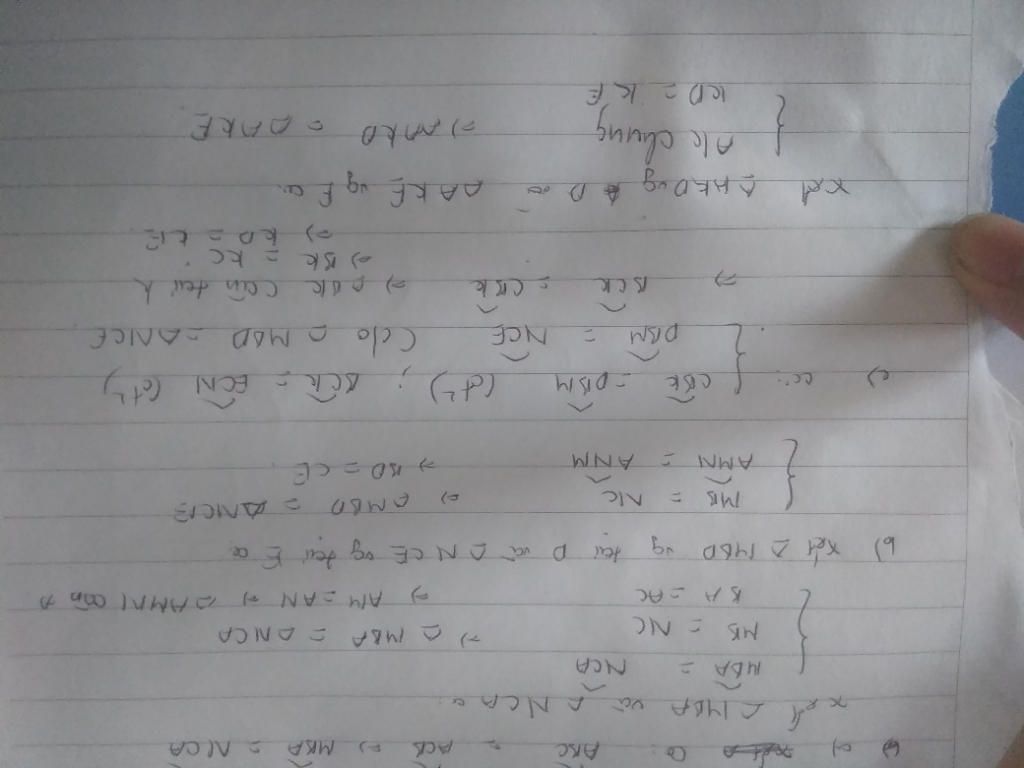 a) Có: ABC = ACB ⇒ MBA = NCA
xét △MBA và △NCA có:
{ MBA = NCA
MB = NC ⇒ △MBA = △NCA
BA = AC ⇒ AM = AN ⇒ △AMN cân A
b) xét △MBD vg tại D và △NCE vg tại E có
{ MB = NC ⇒ △MBD = △NCE
AMN = ANM ⇒ BD = CE
c) có: { CBK = DBM (đ²) ; BCK = ECN (đ²)
DBM = NCE (do △MBD = △NCE
⇒ BCK = CBK ⇒ △BK cân tại K
⇒ BK = KC
⇒ KD = KE
xét △AKD vg D và △AKE vg E có:
{ AK chung ⇒ AKD = △AKE
KD = KE